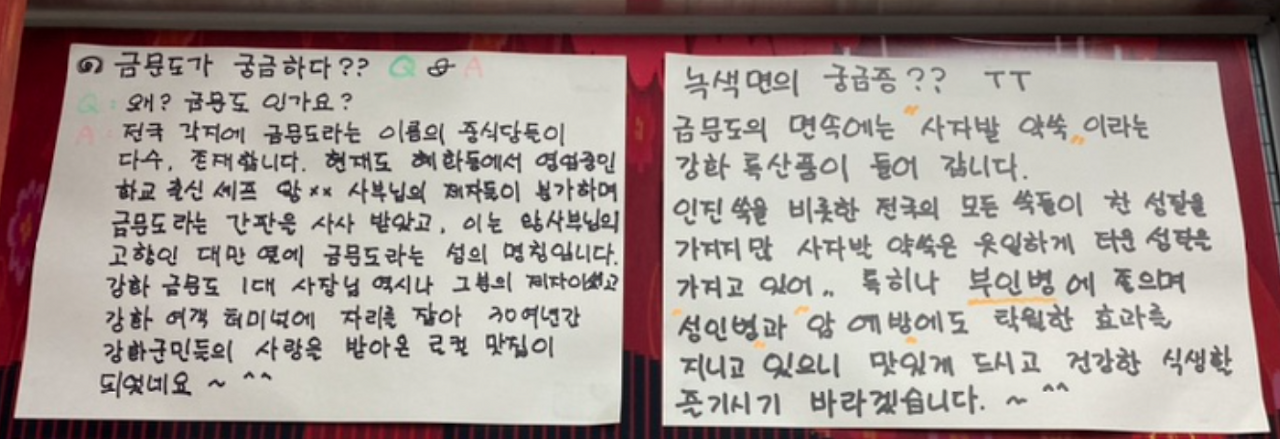 ① 금문도가 궁금하다?? Q & A
Q: 왜? 금문도 인가요?
A: 전국 각지에 금문도라는 이름의 중식당들이
다수, 존재합니다. 현재도 혜화동에서 영업중인
화교 출신 셰프 왕×× 사부님의 제자들이 분가하며
금문도라는 간판을 사사 받았고, 이는 왕사부님의
고향인 대만 옆에 금문도라는 섬의 명칭입니다.
강화 금문도 1대 사장님 역시나 그분의 제자이셨고
강화 여객 터미널에 자리를 잡아 30여년간
강화군민들의 사랑을 받아온 로컬 맛집이
되었네요 ~ ^^
녹색면의 궁금증?? ㅜㅜ
금문도의 면속에는 "사자발 약쑥" 이라는
강화 특산품이 들어 갑니다.
인진쑥을 비롯한 전국의 모든 쑥들이 찬 성질을
가지지만 사자발 약쑥은 유일하게 더운 성질을
가지고 있어.. 특히나 부인병에 좋으며
성인병과 암 예방에도 탁월한 효과를
지니고 있으니 맛있게 드시고 건강한 식생활
즐기시기 바라겠습니다. ~ ^^